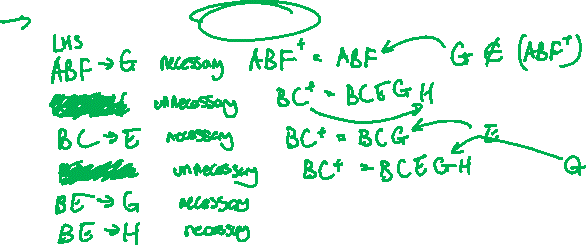 LHS
ABF → G necessary ABF⁺ = ABF G ∉ (ABF⁺)
unnecessary BC⁺ = BCEGH
BC → E necessary BC⁺ = BCG E
unnecessary BC⁺ = BCEGH G
BE → G necessary
BE → H necessary